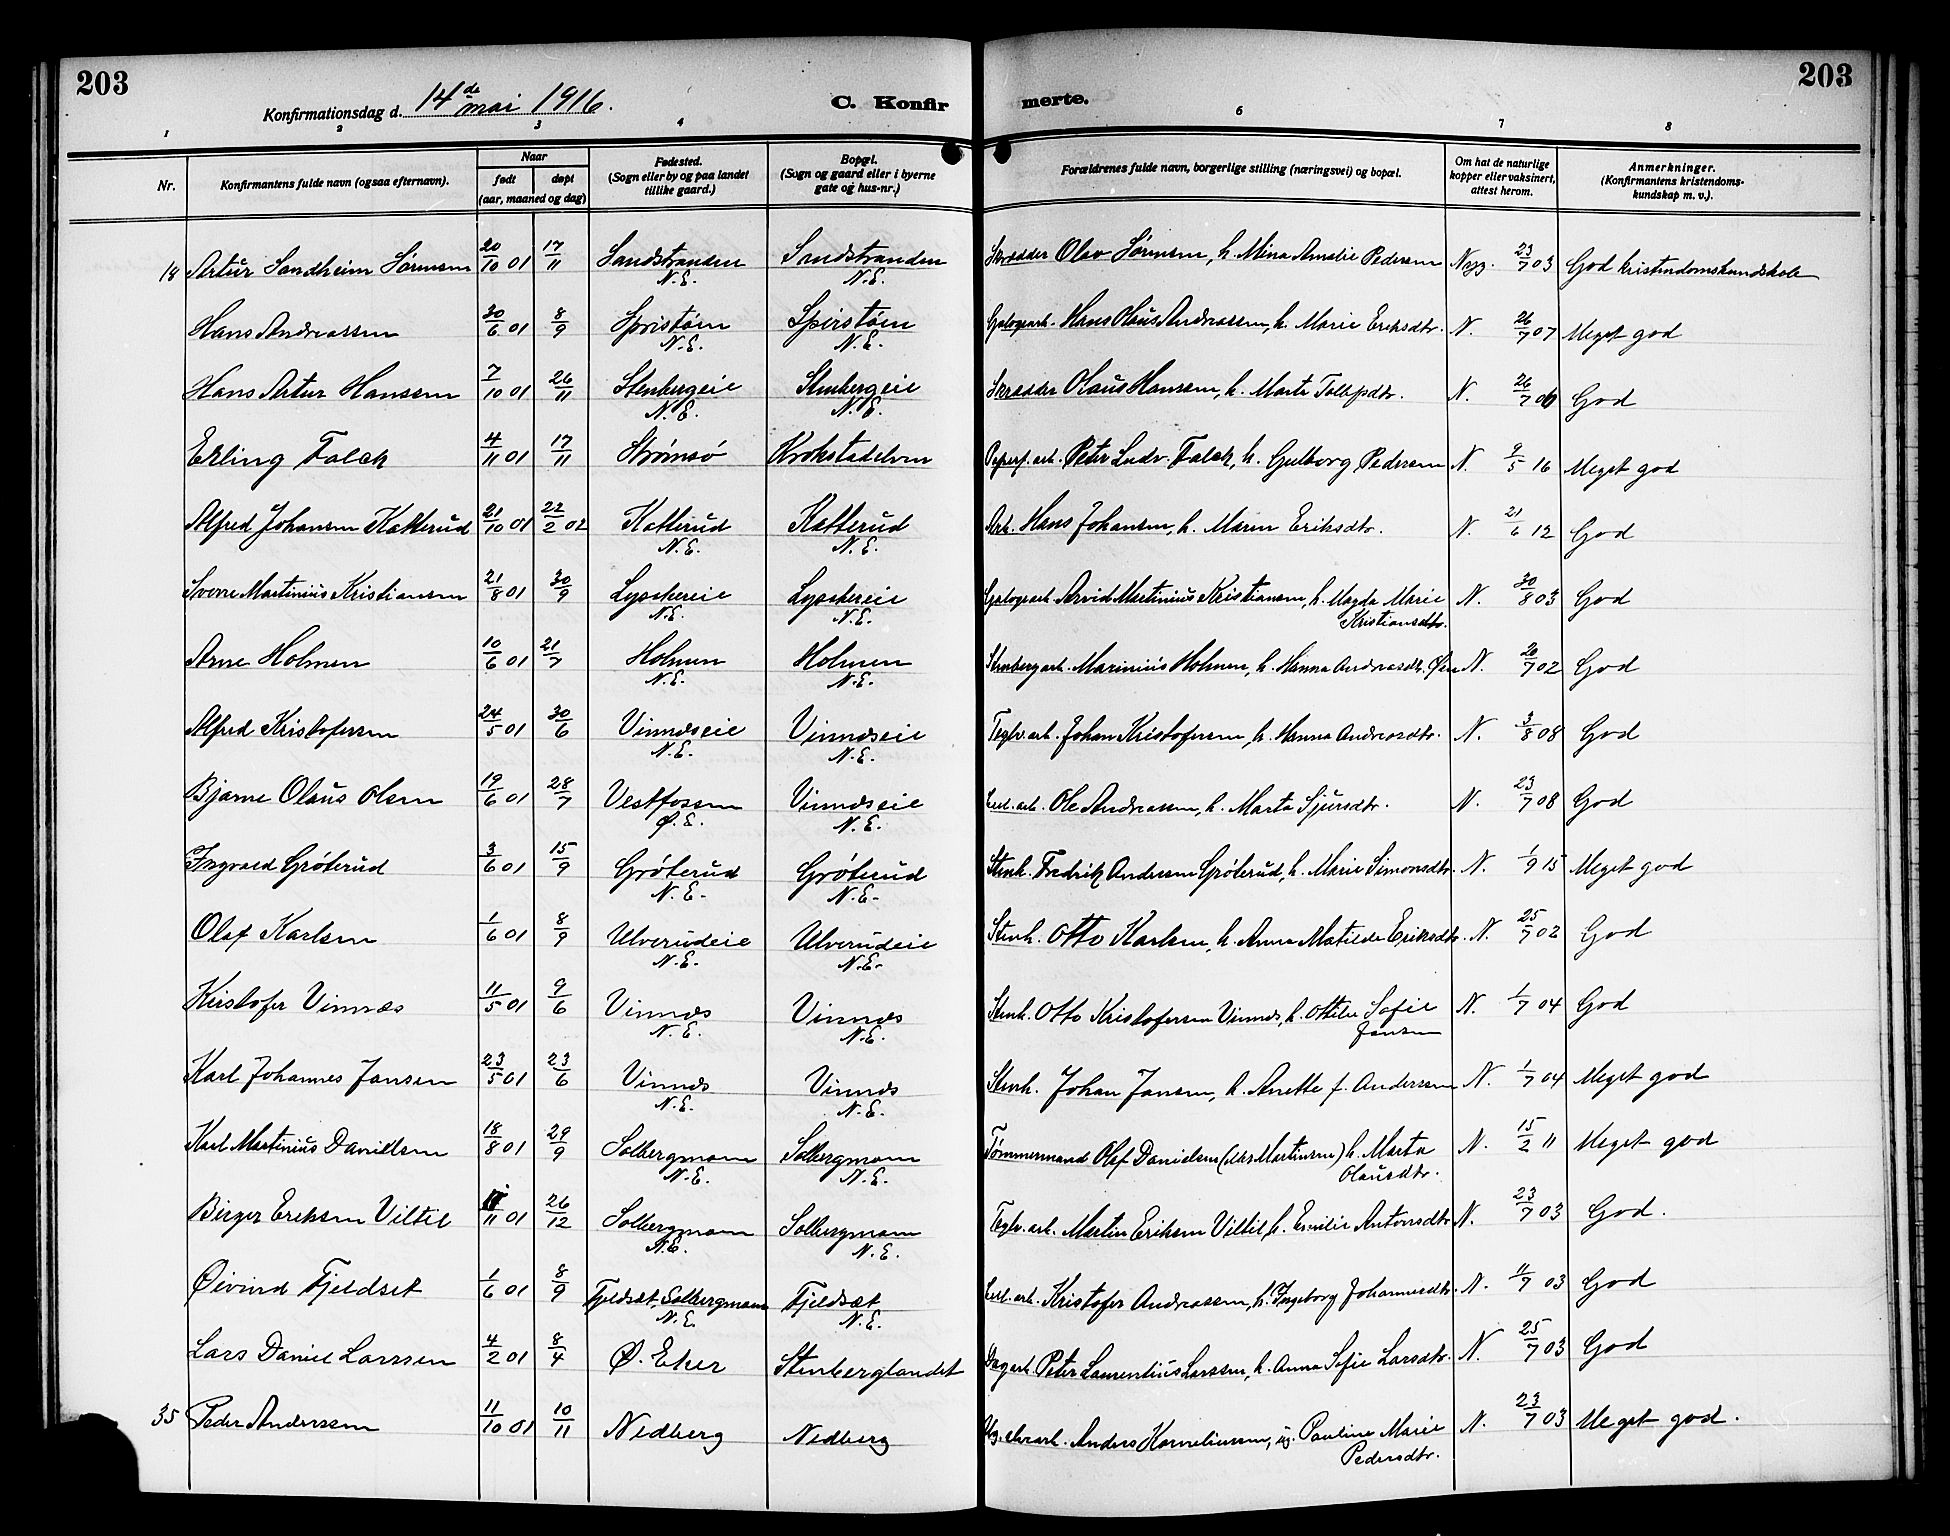 203
Konfirmationsdag d. 14de mai 1916.
C. Konfir merte.
203
1 2 3 4 6 7 8
Nr.
Konfirmantens fulde navn (ogsaa efternavn).
Naar
født døpt
(aar, maaned og dag)
Fødested.
(Sogn eller by og paa landet
tillike gaard.)
Bopæl.
(Sogn og gaard eller i byerne
gate og hus-nr.)
Forældrenes fulde navn, borgerlige stilling (næringsvei) og bopæl.
Om hat de naturlige
kopper eller vaksinert,
attest herom.
Anmerkninger.
(Konfirmantens kristendoms-
kundskap m. v.).
18 Artur Sandheim Sørensen 20/10 01 17/11 Sandstranden N.E. Sandstranden N.E. Skrædder Olav Sørensen, h. Mina Amalie Pedersen 23/7 03 God kristendomskundskab
Hans Andreassen 30/6 01 8/9 N.E. N.E. Hans Olaus Andreassen, h. Marie Eriksdtr. N. 26/7 07 Meget god
Hans Artur Hanssen 7/10 01 26/11 Stenbergeie N.E. Stenbergeie N.E. Skrædder Olaus Hansen, h. Marte N. 26/7 06 God
Erling Falck 4/11 01 17/11 Strømsø Krokstadelven Papirf. arb. Peter Ludv. Falck, h. Gulborg Pedersen N. 9/5 16 Meget god
Alfred Johansen Katterud 21/10 01 22/2 02 Katterud N.E. Katterud N.E. Arb. Hans Johansen, h. Maren Eriksdtr. N. 21/6 12 God
Sverre Martinius Kristiansen 21/8 01 30/9 N.E. N.E. Arvid Martinius Kristiansen, h. Magda Marie Kristiansdtr. N. 30/8 03 God
Arne Holmen 10/6 01 21/7 Holmen N.E. Holmen N.E. Marinius Holmen, h. Hanna Andreasdtr. N. 20/7 02 God
Alfred Kristofersen 24/5 01 30/6 Vinnæseie N.E. Vinnæseie N.E. Teglv. arb. Johan Kristofersen, h. Hanna Andreasdtr. N. 3/8 08 God
Bjarne Olaus Olsen 19/6 01 28/7 Vestfossen Ø.E. Vinnæseie N.E. Cell. arb. Ole Andreassen, h. Marta Sjursdtr. N. 23/7 08 God
Ingvald Grøterud 3/6 01 15/9 Grøterud N.E. Grøterud N.E. Stenh. Fredrik Andersen Grøterud, h. Marie Simonsdtr. N. 1/9 15 Meget god
Olaf Karlsen 1/6 01 8/9 Ulverudeie N.E. Ulverudeie N.E. Stenh. Otto Karlsen, h. Anna Matilde Eriksdtr. N. 25/7 02 God
Kristofer Vinnæs 11/5 01 9/6 Vinnæs N.E. Vinnæs N.E. Stenh. Otto Kristofersen Vinnæs, h. Ottilie Sofie Jansen N. 1/7 04 God
Karl Johannes Jansen 23/5 01 23/6 Vinnæs N.E. Vinnæs N.E. Stenh. Johan Jansen, h. Anette f. Anderssen N. 1/7 04 Meget god
Karl Martinius Danielsen 18/8 01 29/9 Solbergmoen N.E. Solbergmoen N.E. Tømmermand Olaf Danielsen (elr. Martinsen) h. Marta Olausdtr. N. 15/2 11 Meget god
Birger Eriksen Viltil 11 01 26/12 Solbergmoen N.E. Solbergmoen N.E. Teglv. arb. Martin Eriksen Viltil, h. Emilie Antonsdtr N. 23/7 03 God.
Øivind Fjeldset 1/6 01 8/9 Fjeldsæt, Solbergmoen N.E. Fjeldsæt N.E. Cell. arb. Kristofer Andreassen, h. Ingeborg Johannesdtr. N. 11/7 03 God
Lars Daniel Larssen 4/2 01 8/4 Ø. Eker Stenberglandet Dagarb. Peter Laurentius Larssen, h. Anna Sofie Larsdtr. N. 25/7 03 God
35 Peder Anderssen 11/10 01 10/11 Nedberg Nedberg Anders Korneliussen, ug. Pauline Marie Pedersdtr. N. 23/7 03 Meget god.